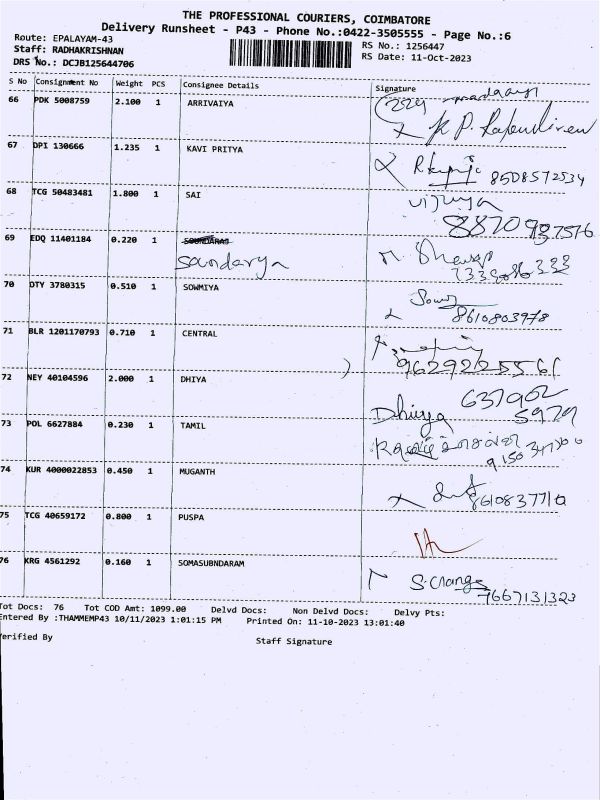 THE PROFESSIONAL COURIERS, COIMBATORE
Delivery Runsheet - P43 - Phone No.:0422-3505555 - Page No.:6
Route: EPALAYAM-43
RS No.: 1256447
Staff: RADHAKRISHNAN
RS Date: 11-Oct-2023
DRS No.: DCJB125644706
S No Consignment No Weight PCS Consignee Details Signature
66 PDK 5008759 2.100 1 ARRIVAIYA
67 DPI 130666 1.235 1 KAVI PRITYA
8508572534
68 TCG 50483481 1.800 1 SAI
vijaya
8870937576
69 EDQ 11401184 0.220 1 SOUNDARAJ
Sandarya
70 DTY 3780315 0.510 1 SOWMIYA
8610803978
71 BLR 1201170793 0.710 1 CENTRAL
72 NEY 40104596 2.000 1 DHIYA
637902
5979
Dhiya
73 POL 6627884 0.230 1 TAMIL
74 KUR 4000022853 0.450 1 MUGANTH
75 TCG 40659172 0.800 1 PUSPA
76 KRG 4561292 0.160 1 SOMASUBNDARAM
7667131323
Tot Docs: 76 Tot COD Amt: 1099.00 Delvd Docs: Non Delvd Docs: Delvy Pts:
Entered By :THAMMEMP43 10/11/2023 1:01:15 PM Printed On: 11-10-2023 13:01:40
erified By
Staff Signature